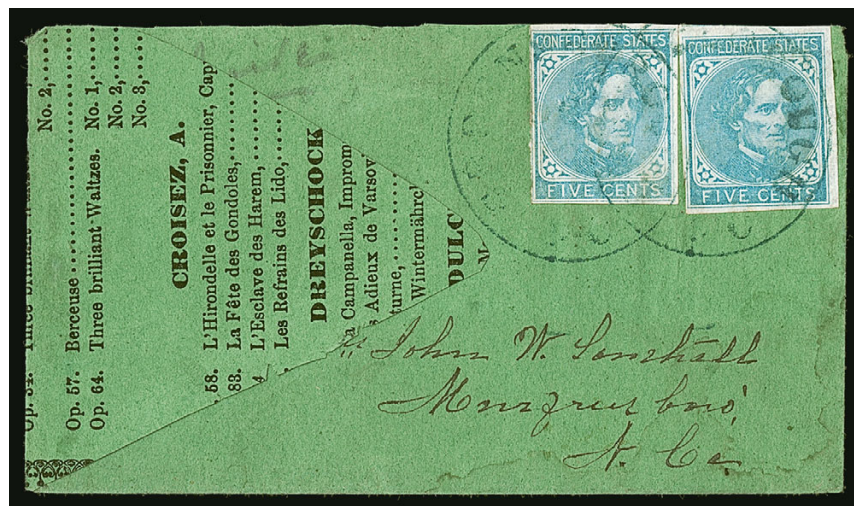 No. 2,
Op. 57. Berceuse
Op. 64. Three brilliant Waltzes. No. 1,
No. 2,
No. 3,
CROISEZ, A.
58. L'Hirondelle et le Prisonnier, Cap
83. La Fête des Gondoles,
4 L'Esclave des Harem,
Les Refrains des Lido,
DREYSCHOCK
a Campanella, Improm
Adieux de Varsov
turne,
Wintermährch
DULC
M
CONFEDERATE STATES
FIVE CENTS
CONFEDERATE STATES
FIVE CENTS
John W. Southall
Murfreesboro,
N. Ca.